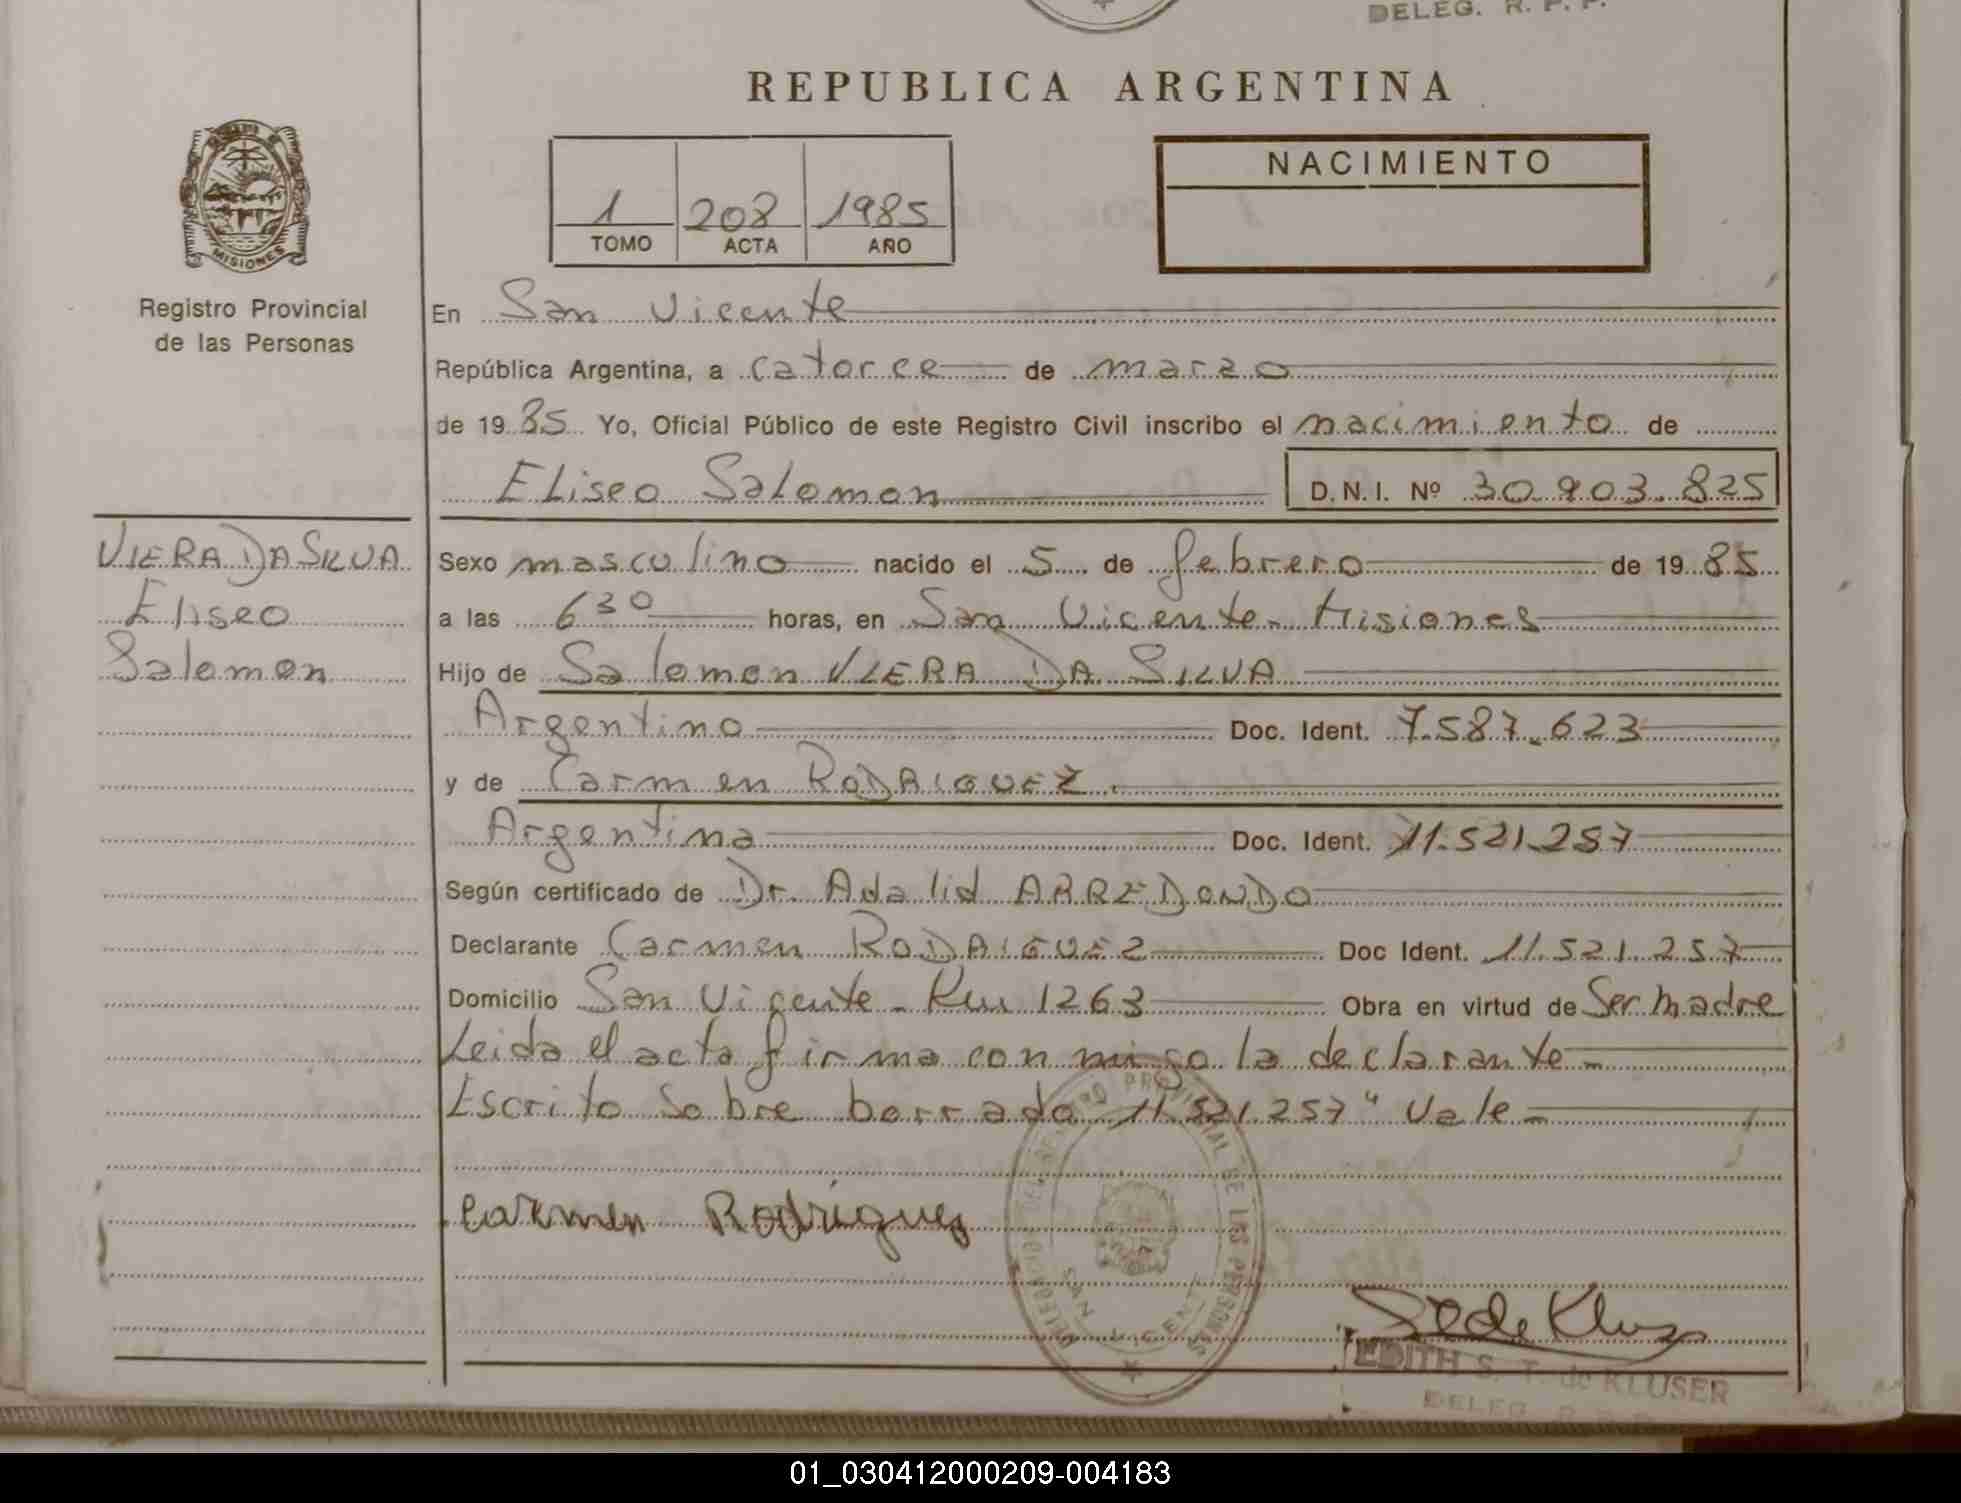 DELEG. R. P. P.
REPUBLICA ARGENTINA
NACIMIENTO
1 208 1985
TOMO ACTA AÑO
MISIONES
Registro Provincial
de las Personas
En San Vicente
República Argentina, a catorce de marzo
de 19 85 Yo, Oficial Público de este Registro Civil inscribo el nacimiento de
Eliseo Salomon D.N.I. Nº 30.903.825
VIERA DA SILVA
Eliseo
Salomon
Sexo masculino nacido el 5 de febrero de 19 85
a las 6 30 horas, en San Vicente - Misiones
Hijo de Salomon VIERA DA SILVA
Argentino Doc. Ident. 7.587.623
y de Carmen RODRIGUEZ.
Argentina Doc. Ident. 11.521.257
Según certificado de Dr. Adalid ARREDONDO
Declarante Carmen RODRIGUEZ Doc Ident. 11.521.257
Domicilio San Vicente - Km 1263 Obra en virtud de Ser madre
Leida el acta firma con migo la declarante -
Escrito sobre borrado "11.521.257" Vale -
Carmen Rodriguez
DELEGACION DEL REGISTRO PROVINCIAL DE LAS PERSONAS
SAN VICENTE
S de Kluser
EDITH S. T. de KLUSER
DELEG. R. P. P.
01_030412000209-004183